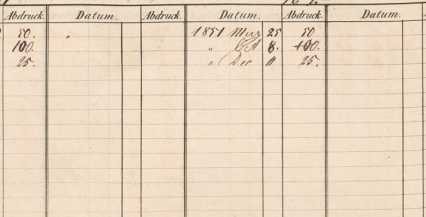 Abdruck. Datum. Abdruck. Datum. Abdruck. Datum.
50. 1851 May 25 50
100. " Oct 8. 100.
25. " Dec 11 25.